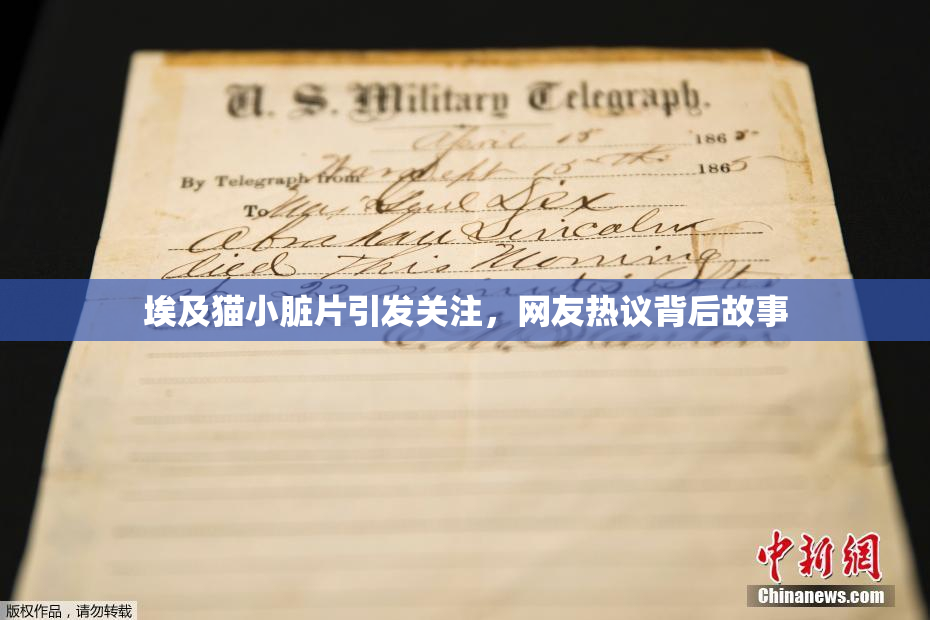 U. S. Military Telegraph.
April 15 1865
By Telegraph from War Dept 15th 1865
To Maj Genl Dix
Abraham Lincoln
died This Morning
at 22 minutes after
埃及猫小脏片引发关注，网友热议背后故事
中新网
Chinanews.com
版权作品，请勿转载